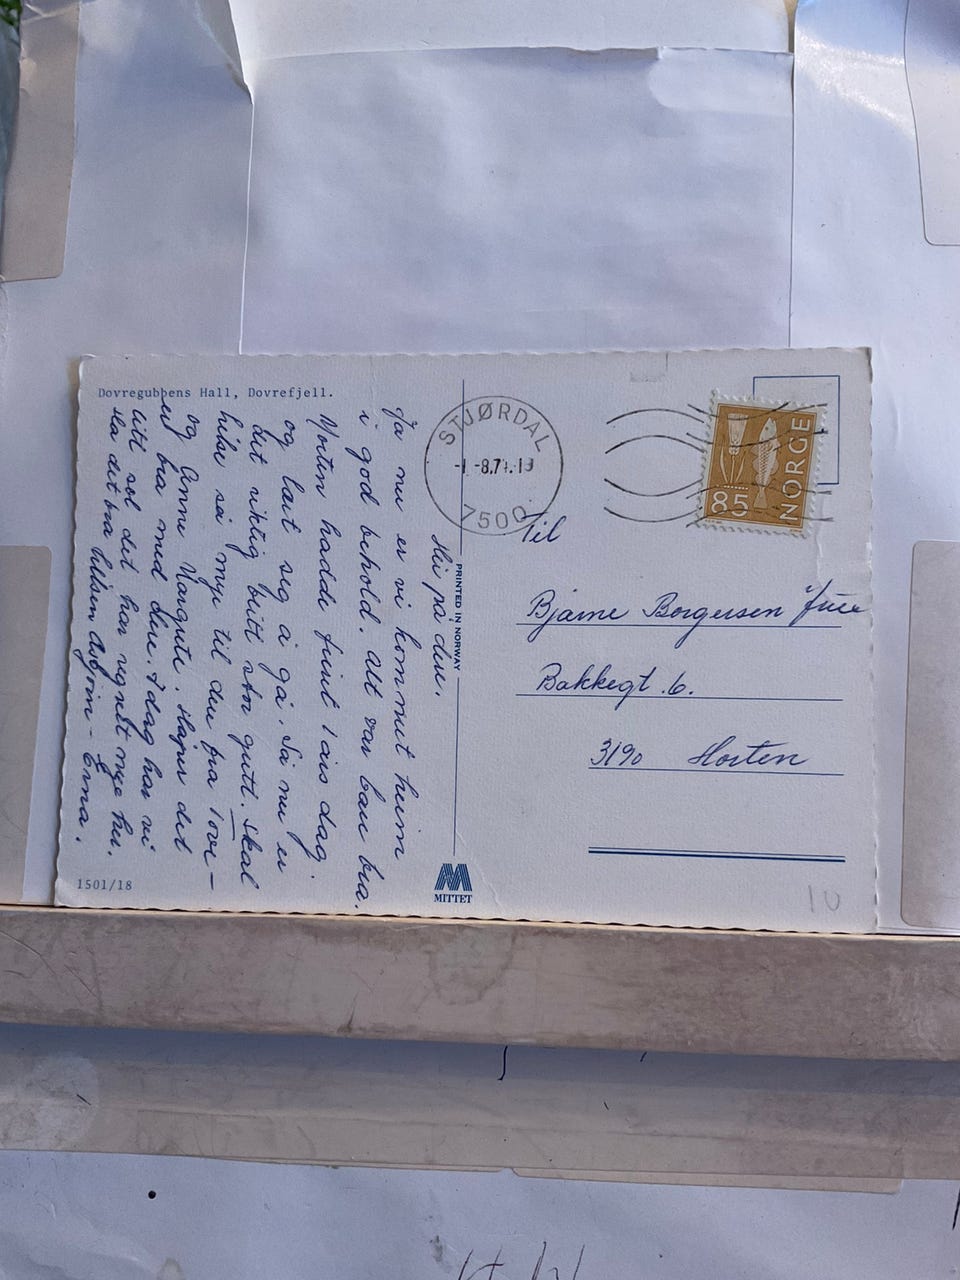 Dovregubbens Hall, Dovrefjell.
Hei på dere.
Ja nu er vi kommet heim
i god behold. alt var bare bra.
Morten hadde fint 1 års dag.
og lært seg å gå. Så nu er
det riktig blitt stor gutt. Skal
hilse så mye til dere fra Tove-
og Anne Margrete. Håper det
er bra med dere. I dag har vi
litt sol det har regnet mye her.
Ha det bra hilsen Asbjørn - Erna.
1501/18
PRINTED IN NORWAY
MITTET
STJØRDAL
-8.7
7500
NORGE
85
Til
Bjarne Borgersen m/frue
Bakkegt. 6.
3190 Horten
10